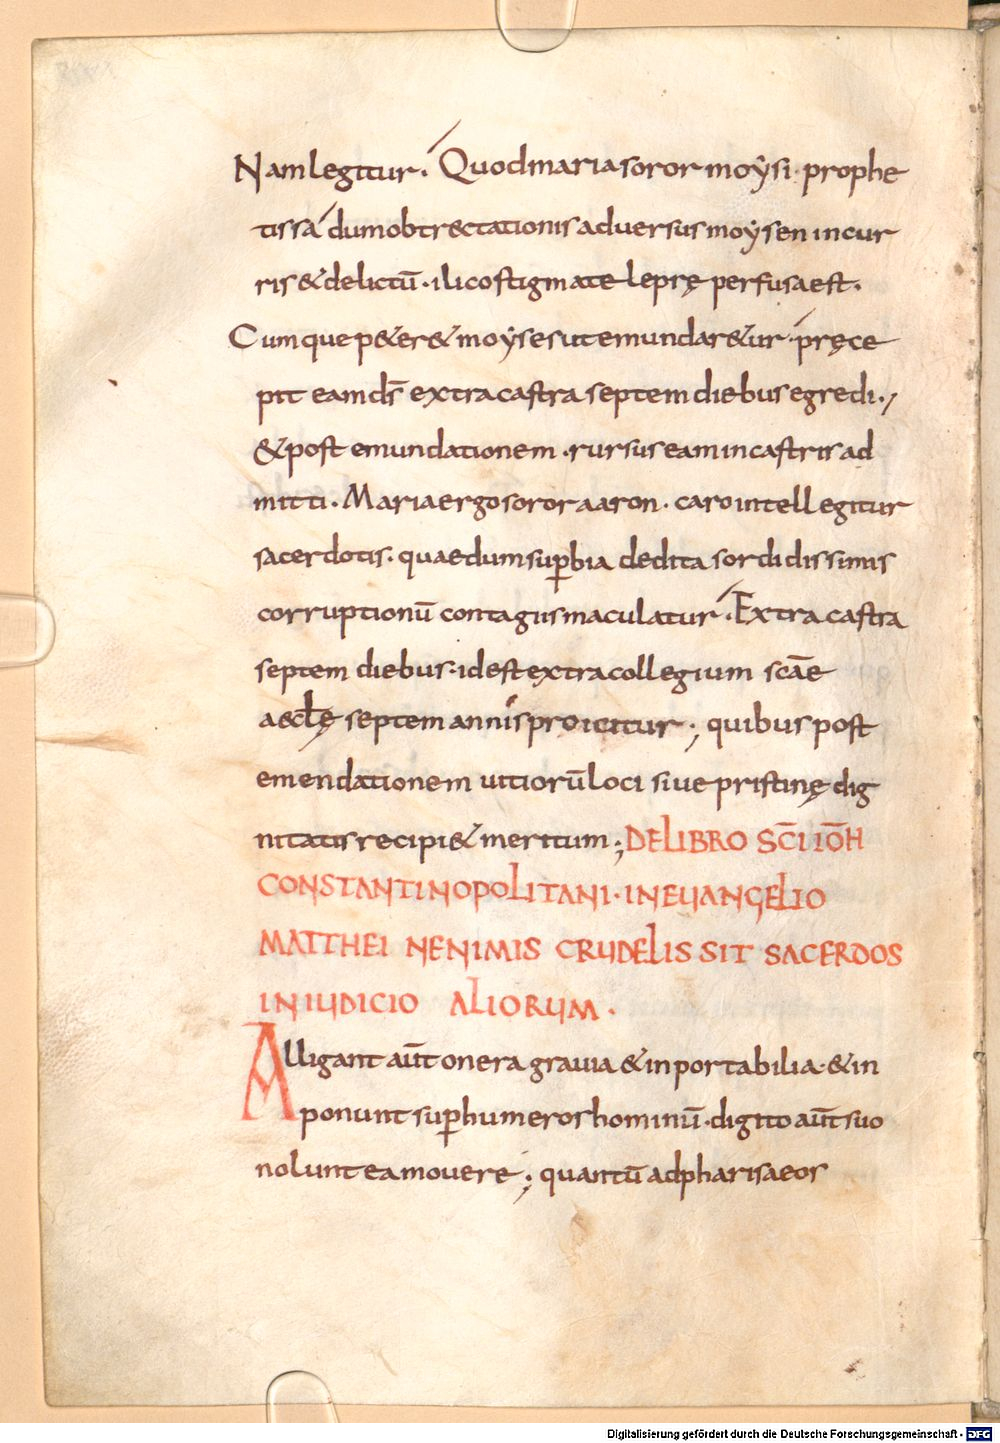 Nam legitur. Quod maria soror moẏsi · prophe
tissa dum obtrectationis adversus moẏsen incur
ris&delictū · ilico stigmate leprę perfusa est.
Cumque p&er& moẏses ut emundar&ur · pręce
pit eam ds̄ extra castra septem diebus egredi.,
& post emundationem · rursus eam in castris ad
mitti. Maria ergo soror aaron · caro intellegitur
sacerdotis. quae dum sup̱bia dedita sordidissimis
corruptionū contagiis maculatur. Extra castra
septem diebus · id est extra collegium scāe
aeccl̄ę septem annis proicitur; quibus post
emendationem vitiorū loci sive pristinę dig
nitatis recipi& meritum; DE LIBRO SC̄I IOH̄
CONSTANTINOPOLITANI · IN EUANGELIO
MATTHEI NE NIMIS CRUDELIS SIT SACERDOS
IN IUDICIO ALIORUM.
Alligant aūt onera gravia & inportabilia · & in
ponunt sup̱ humeros hominū · digito aūt suo
nolunt ea movere; quantū ad pharisaeos
Digitalisierung gefördert durch die Deutsche Forschungsgemeinschaft - DFG